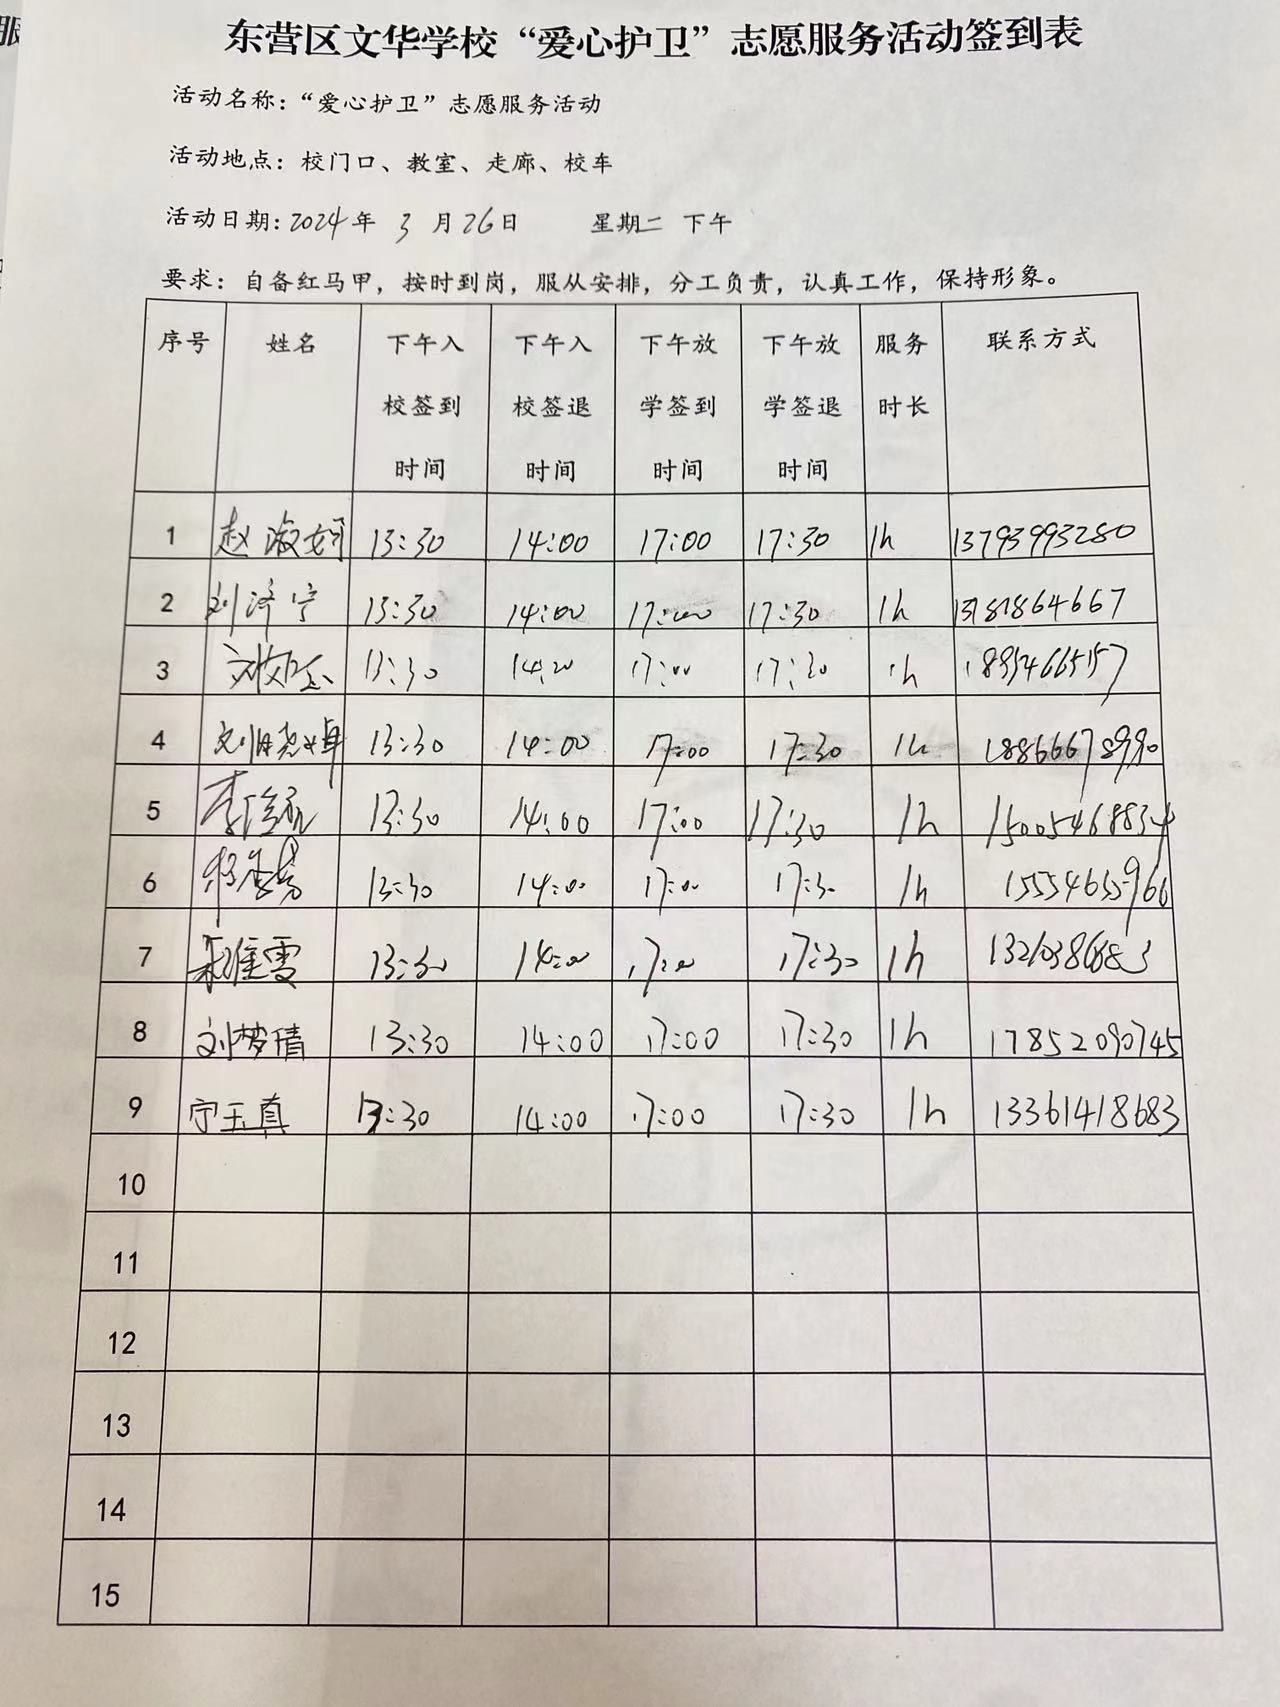 东营区文华学校“爱心护卫”志愿服务活动签到表
活动名称：“爱心护卫”志愿服务活动
活动地点：校门口、教室、走廊、校车
活动日期：2024年 3 月 26日 星期二 下午
要求：自备红马甲，按时到岗，服从安排，分工负责，认真工作，保持形象。
序号 姓名 下午入校签到时间 下午入校签退时间 下午放学签到时间 下午放学签退时间 服务时长 联系方式
1 赵淑婷 13:30 14:00 17:00 17:30 1h 13793993280
2 刘泽宁 13:30 14:00 17:00 17:30 1h 13181864667
3 13:30 14:00 17:00 17:30 1h 18954665157
4 13:30 14:00 17:00 17:30 1h 18866678990
5 13:30 14:00 17:00 17:30 1h 15005468834
6 13:30 14:00 17:00 17:30 1h
7 13:30 14:00 17:00 17:30 1h
8 刘梦倩 13:30 14:00 17:00 17:30 1h 17852090745
9 宁玉真 13:30 14:00 17:00 17:30 1h 13361418683
10
11
12
13
14
15